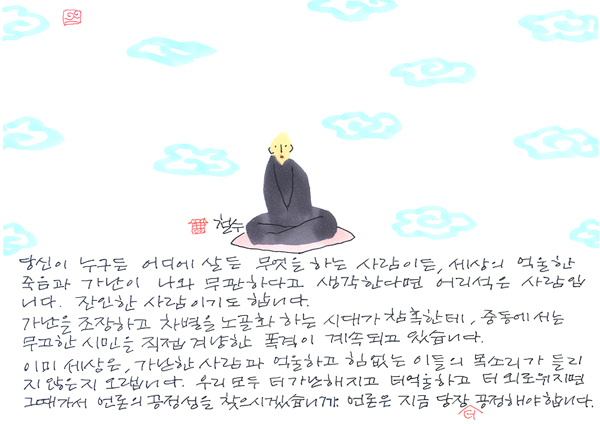 철수
당신이 누구든 어디에 살든 무엇을 하는 사람이든, 세상의 억울한
죽음과 가난이 나와 무관하다고 생각한다면 어리석은 사람입
니다. 잔인한 사람이기도 합니다.
가난을 조장하고 차별을 노골화 하는 시대가 참혹한데, 중동에서는
무고한 시민을 직접 겨냥한 폭격이 계속되고 있습니다.
이미 세상은, 가난한 사람과 억울하고 힘없는 이들의 목소리가 들리
지 않은지 오랩니다. 우리 모두 더 가난해지고 더 억울하고 더 외로워지면
그때가서 언론의 공정성을 찾으시겠습니까? 언론은 지금 당장 더 공정해야 합니다.